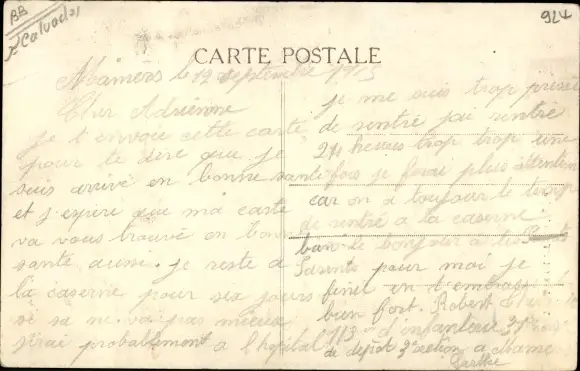 BB
Calvados
924
CARTE POSTALE
Mamers le 12 septembre 1915
Cher Adrienne
je t envoie cette carte
pour te dire que je
suis arrivé en bonne santé
et j'espère que ma carte
va vous trouvé en bonn
santé aussi. je reste à
la caserne pour six jours
si sa ne va pas mieux
s'irai probablement a l'hopital
je me suis trop pressé
de rentré jai rentré
24 heures trop trop une
fois je ferai plus attention
car on a toujour le temps
de rentré a la caserne.
le bonjour a tes
Parents pour moi je
fini en t'embrassant
bien fort. Robert
113 d'infanterie 31
de dépôt 3e section a Mamers
Sarthe